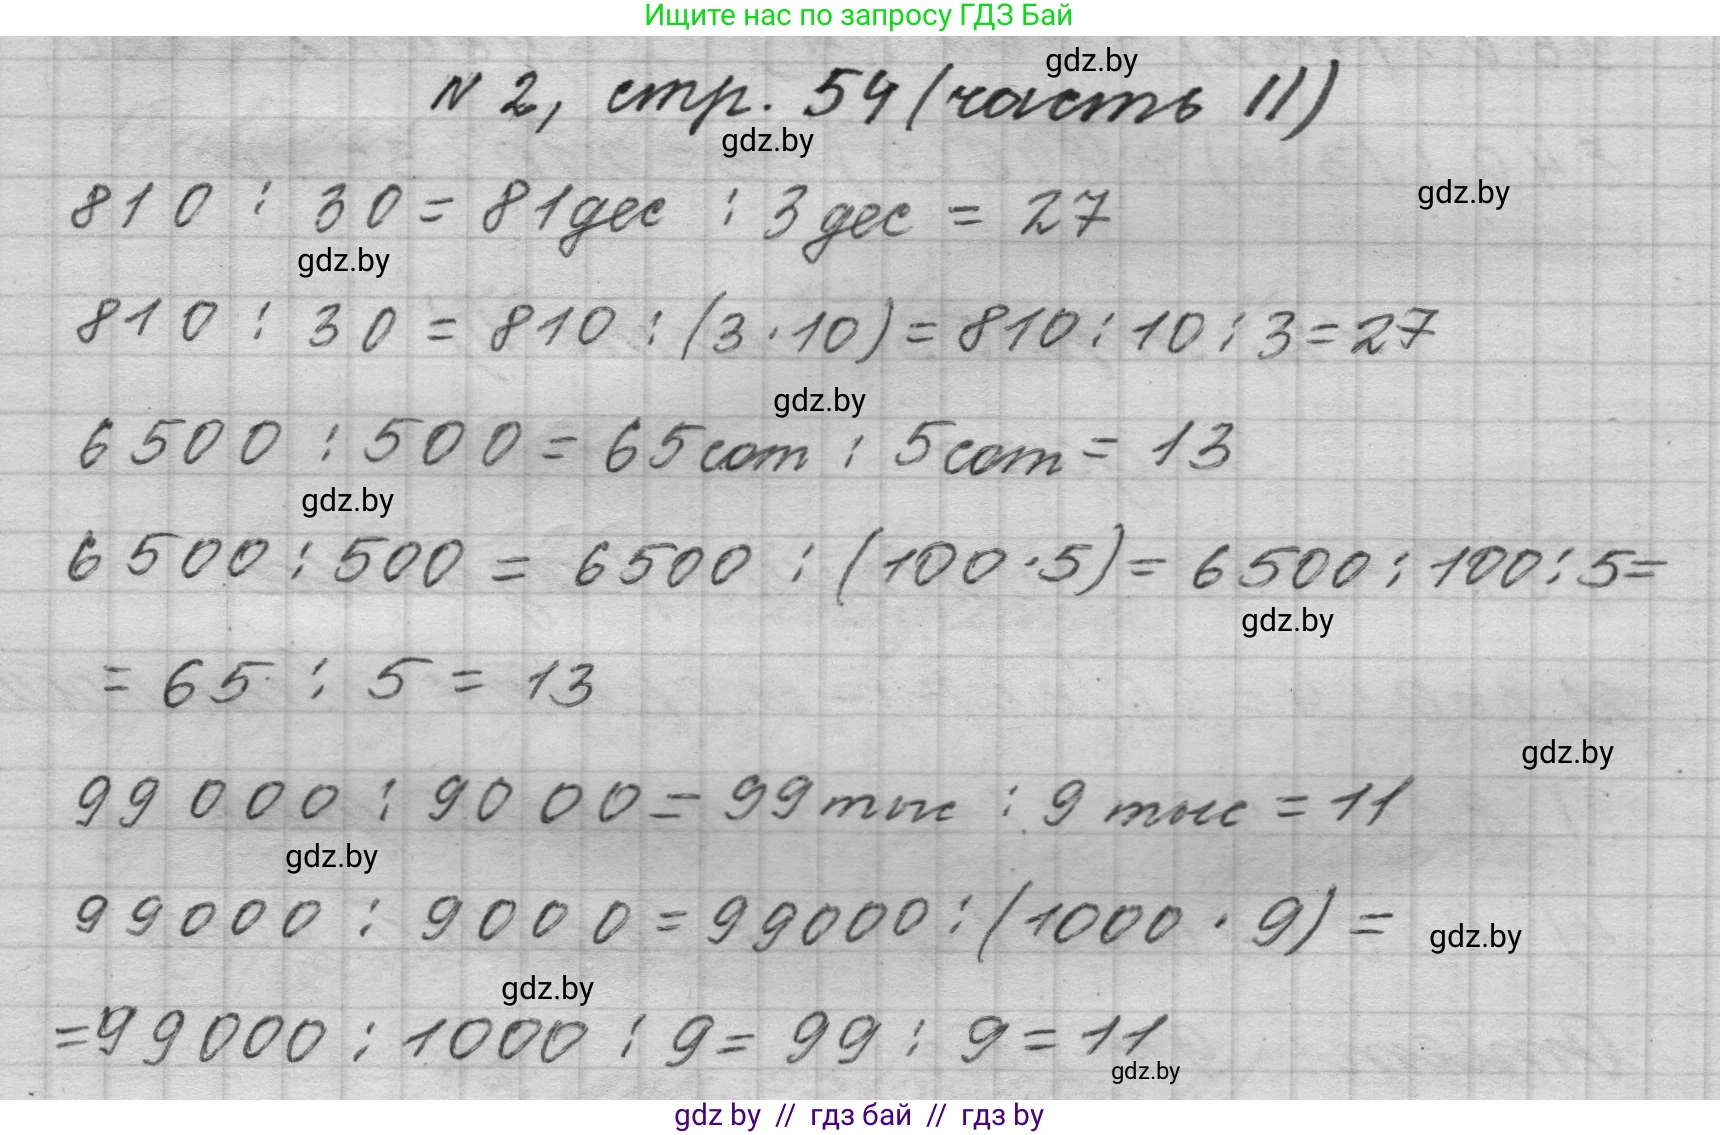 Ищите нас по запросу ГДЗ Бай
gdz.by
N 2, стр. 54 (часть II)
gdz.by
gdz.by
810 : 30 = 81 дес : 3 дес = 27
gdz.by
810 : 30 = 810 : (3 · 10) = 810 : 10 : 3 = 27
gdz.by
6500 : 500 = 65 сот : 5 сот = 13
gdz.by
6500 : 500 = 6500 : (100 · 5) = 6500 : 100 : 5 =
gdz.by
= 65 : 5 = 13
gdz.by
99 000 : 9000 = 99 тыс : 9 тыс = 11
gdz.by
99000 : 9000 = 99000 : (1000 · 9) =
gdz.by
gdz.by
= 99000 : 1000 : 9 = 99 : 9 = 11
gdz.by
gdz by // гдз бай // гдз by